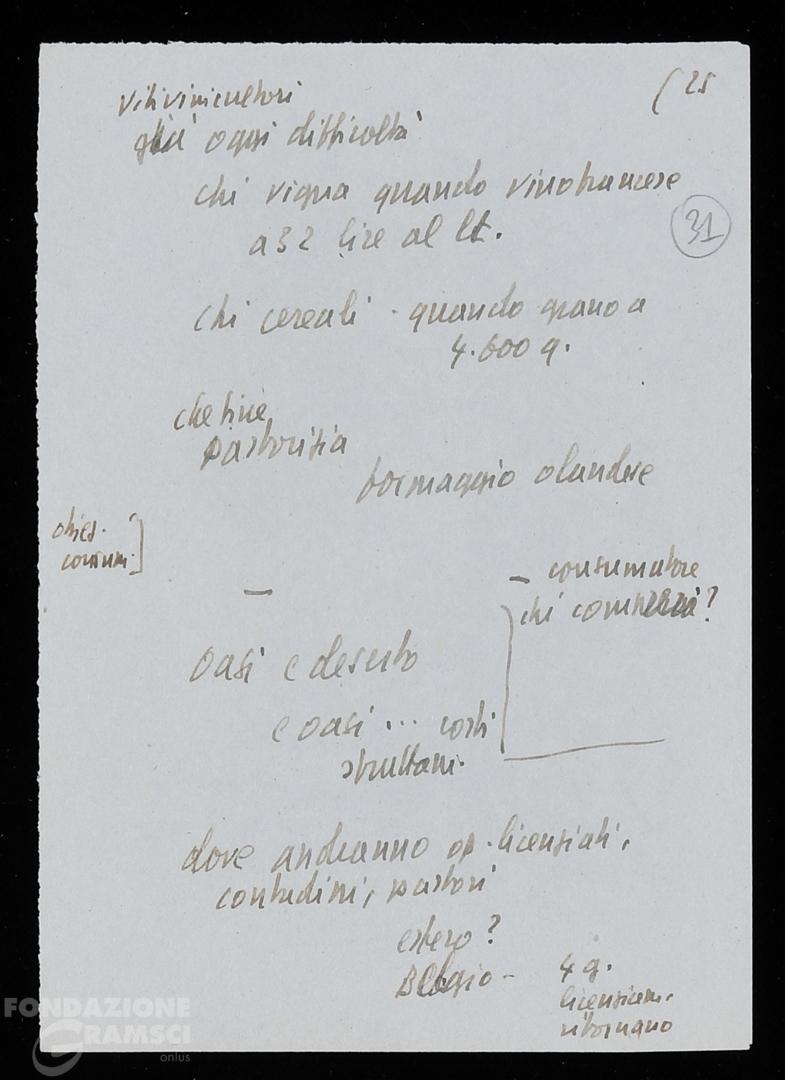 vitivinicultori
(25
già oggi difficoltà
chi vigna quando vino francese
a 32 lire al lt.
31
chi cereali - quando grano a
4.600 q.
che fine
pastorizia
formaggio olandese
- consumatore
chi comprerà?
oasi e deserto
e oasi ... costi
sfruttam.
dove andranno op. licenziati,
contadini, pastori
estero?
Belgio - 4 g.
licenziam.
ritornano
FONDAZIONE
GRAMSCI
onlus